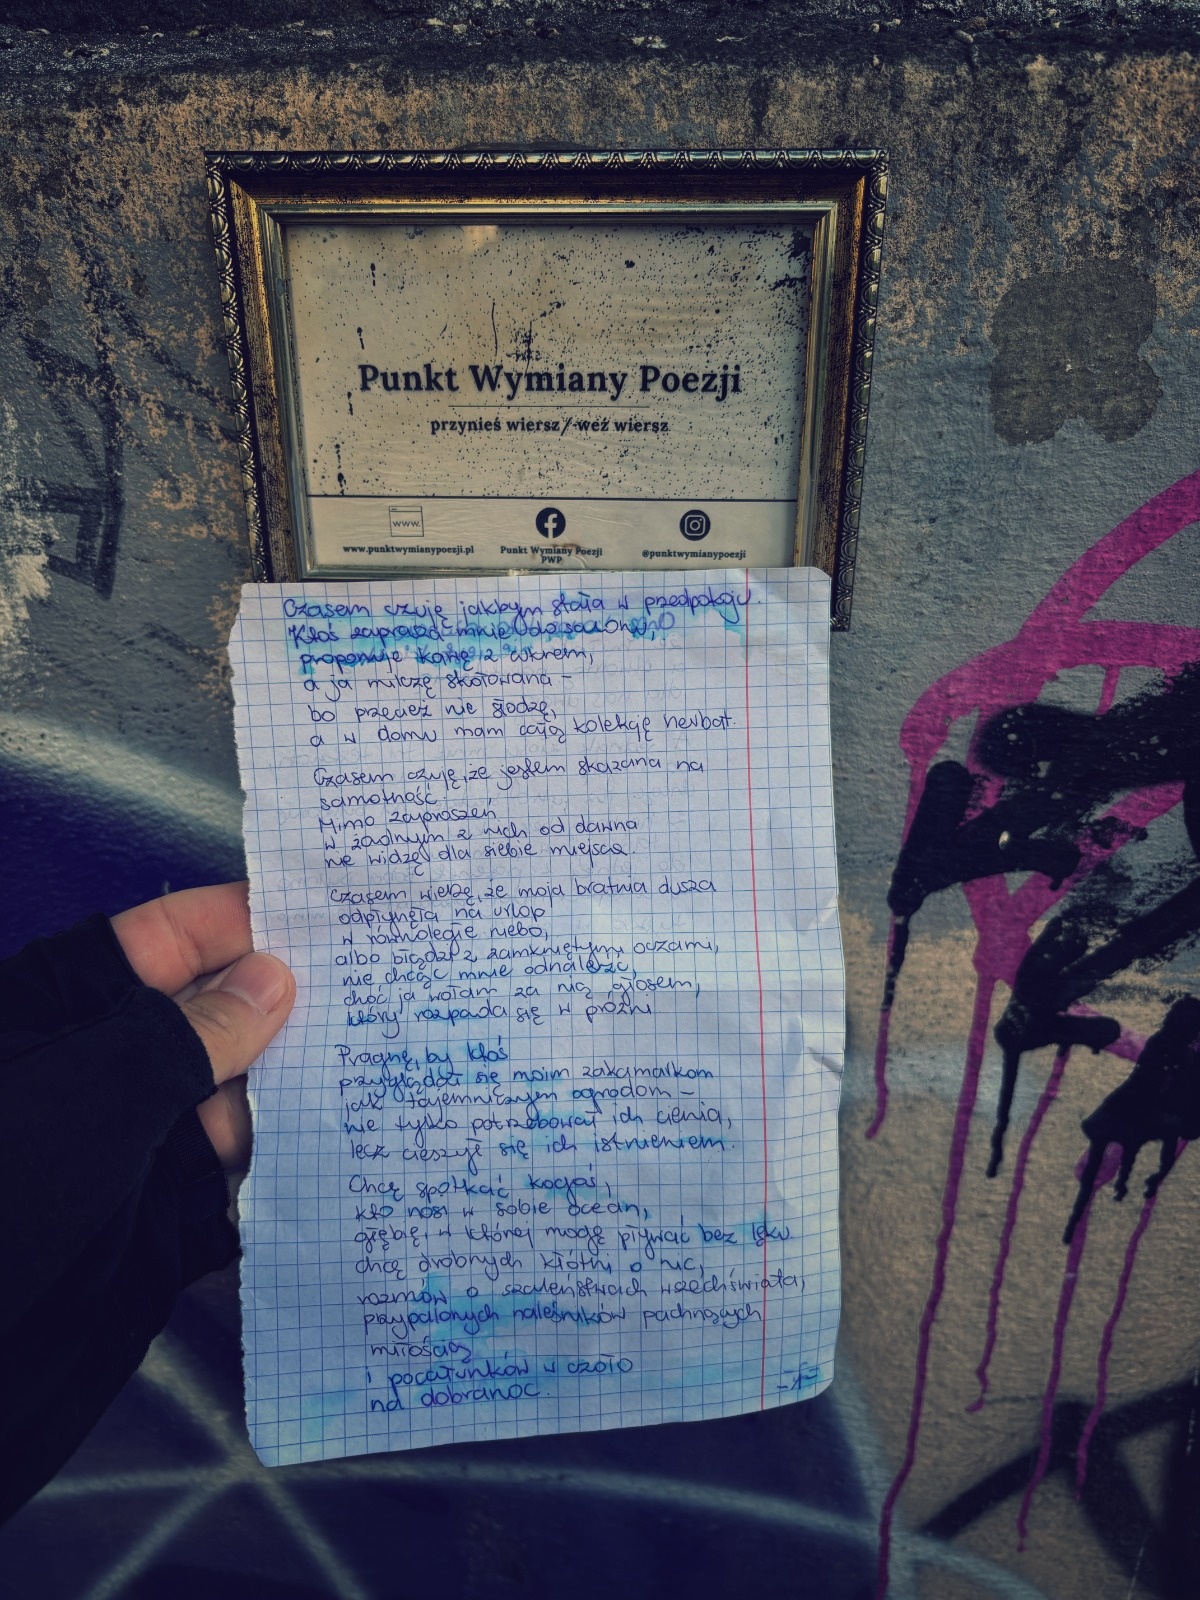 Punkt Wymiany Poezji
przynieś wiersz/weź wiersz
www.
www.punktwymianypoezji.pl
Punkt Wymiany Poezji
PWP
@punktwymianypoezji
Czasem czuję jakbym stała w przedpokoju.
Ktoś zaprasza mnie do salonu,
proponuje kawę z cukrem,
a ja milczę skołowana –
bo przecież nie słodzę,
a w domu mam całą kolekcję herbat.
Czasem czuję, że jestem skazana na
samotność
Mimo zaproszeń
w żadnym z nich od dawna
nie widzę dla siebie miejsca.
Czasem wierzę, że moja bratnia dusza
odpłynęła na urlop
w równoległe niebo,
albo błądzi z zamkniętymi oczami,
nie chcąc mnie odnaleźć,
choć ja wołam za nią głosem,
który rozpada się w próżni
Pragnę, by ktoś
przyglądał się moim zakamarkom
jak tajemniczym ogrodom –
nie tylko potrzebował ich cienia,
lecz cieszył się ich istnieniem.
Chcę spotkać kogoś,
kto nosi w sobie ocean,
głębię, w której mogę pływać bez lęku
chcę drobnych kłótni o nic,
rozmów o szaleństwach wszechświata,
przypalonych naleśników pachnących
miłością
i pocałunków w czoło
na dobranoc.